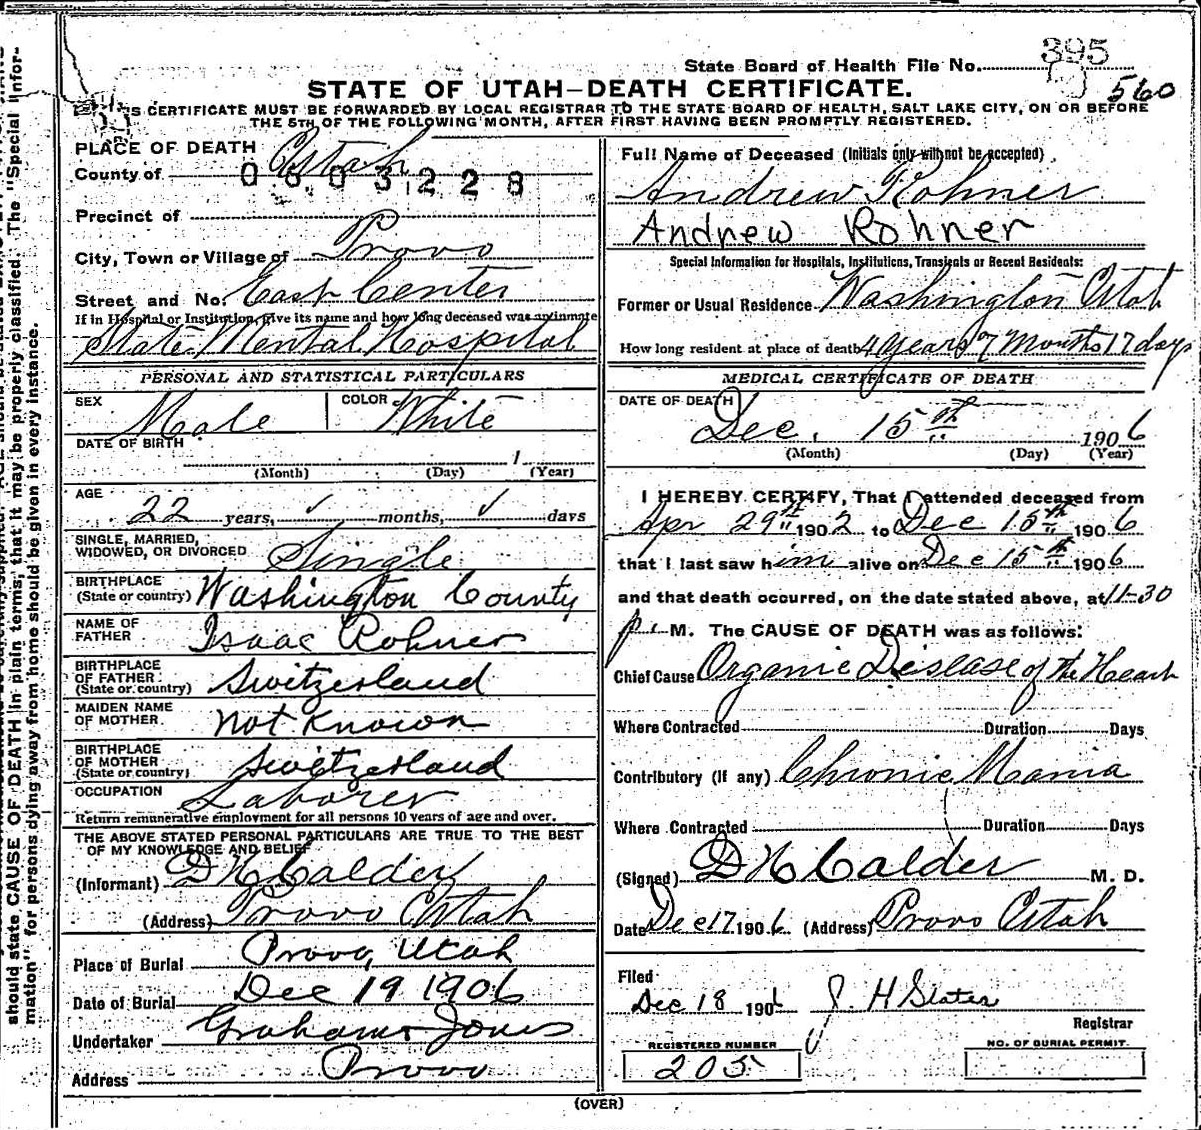 should state CAUSE OF DEATH in plain terms, that it may be properly classified. The "Special Infor-
mation" for persons dying away from home should be given in every instance.
State Board of Health File No. 395
560
STATE OF UTAH—DEATH CERTIFICATE.
S CERTIFICATE MUST BE FORWARDED BY LOCAL REGISTRAR TO THE STATE BOARD OF HEALTH, SALT LAKE CITY, ON OR BEFORE
THE 5TH OF THE FOLLOWING MONTH, AFTER FIRST HAVING BEEN PROMPTLY REGISTERED.
PLACE OF DEATH
County of Utah
0603228
Precinct of
City, Town or Village of Provo
Street and No. East Center
If in Hospital or Institution, give its name and how long deceased was an inmate
State Mental Hospital
PERSONAL AND STATISTICAL PARTICULARS
SEX Male COLOR White
DATE OF BIRTH
(Month) (Day) 1 (Year)
AGE
22 years, ✓ months, ✓ days
SINGLE, MARRIED,
WIDOWED, OR DIVORCED Single
BIRTHPLACE
(State or country) Washington County
NAME OF
FATHER Isaac Rohner
BIRTHPLACE
OF FATHER
(State or country) Switzerland
MAIDEN NAME
OF MOTHER. Not Known
BIRTHPLACE
OF MOTHER
(State or country) Switzerland
OCCUPATION Laborer
Return remunerative employment for all persons 10 years of age and over.
THE ABOVE STATED PERSONAL PARTICULARS ARE TRUE TO THE BEST
OF MY KNOWLEDGE AND BELIEF
(Informant) D H Calder
(Address) Provo Utah
Place of Burial Provo, Utah
Date of Burial Dec 19 1906
Undertaker Graham Jones
Address Provo
Full Name of Deceased (Initials only will not be accepted)
Andrew Rohner
Andrew Rohner
Special Information for Hospitals, Institutions, Transients or Recent Residents:
Former or Usual Residence Washington Utah
How long resident at place of death 4 years 7 months 17 days
MEDICAL CERTIFICATE OF DEATH
DATE OF DEATH
Dec. 15th 1906
(Month) (Day) (Year)
I HEREBY CERTIFY, That I attended deceased from
Apr 29th 1902 to Dec 15th 1906
that I last saw him alive on Dec 15th 1906
and that death occurred, on the date stated above, at 11-30
p. M. The CAUSE OF DEATH was as follows:
Chief Cause Organic Disease of the Heart
Where Contracted Duration Days
Contributory (if any) Chronic Mania
Where Contracted Duration Days
(Signed) D H Calder M. D.
Date Dec 17 1906. (Address) Provo Utah
Filed
Dec 18 1906 J. H Slater
Registrar
REGISTERED NUMBER
205
NO. OF BURIAL PERMIT.
(OVER)